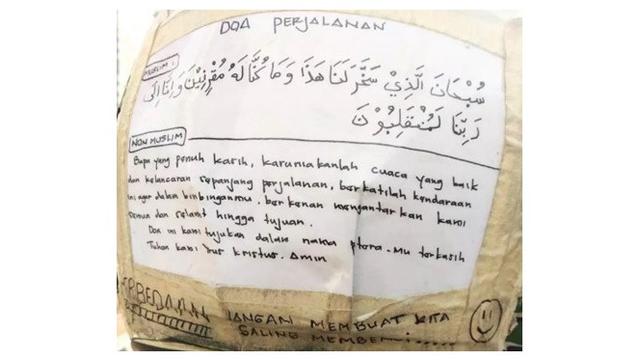 DOA PERJALANAN
MUSLIM :
سُبْحَانَ الَّذِيْ سَخَّرَ لَنَا هَذَا وَمَا كُنَّا لَهُ مُقْرِنِيْنَ وَإِنَّا إِلَى
رَبِّنَا لَمُنْقَلِبُوْنَ
NON MUSLIM
Bapa yang penuh kasih, karuniakanlah cuaca yang baik
dan kelancaran sepanjang perjalanan, berkatilah kendaraan
ini agar dalam bimbinganmu. berkenan mengantarkan kami
semua dan selamt hingga tujuan.
Doa ini kami tujukan dalam nama ptora-mu terkasih
Tuhan kami Kristus. Amin
PERBEDAAN
JANGAN MEMBUAT KITA
SALING MEMBEN